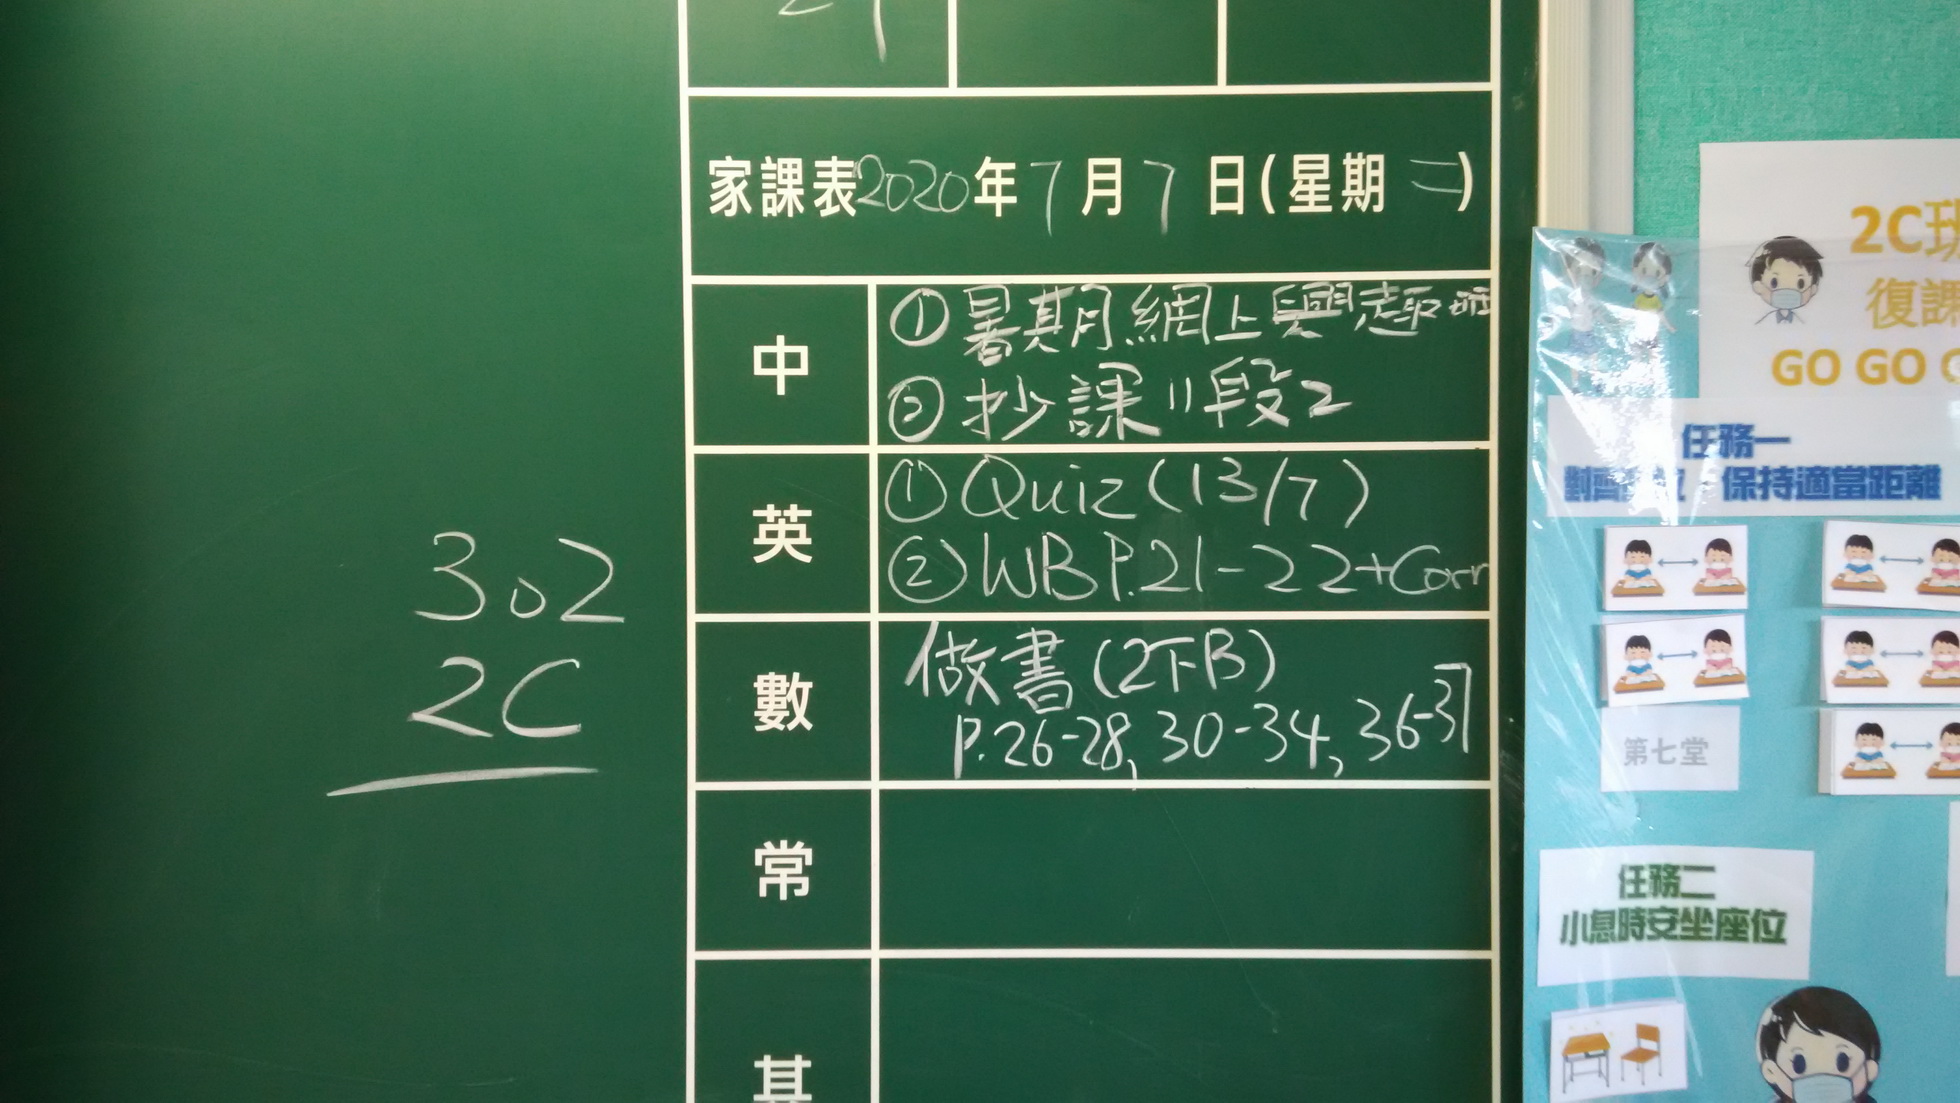 家課表2020年7月7日(星期二)
中
①暑期網上興趣班
②抄課11段2
英
①Quiz(13/7)
②WB P.21-22+Corr
數
做書(2下B)
P.26-28, 30-34, 36-37
常
302
2C
2C班
復課
GO GO
任務一
保持適當距離
第七堂
任務二
小息時安坐座位